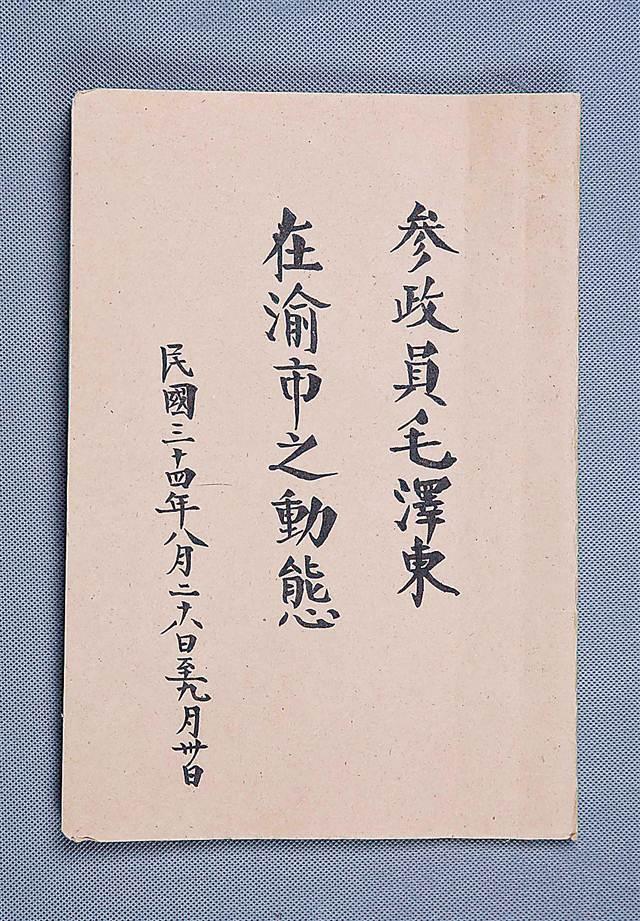 參政員毛澤東
在渝市之動態
民國三十四年八月二十八日至九月卅日